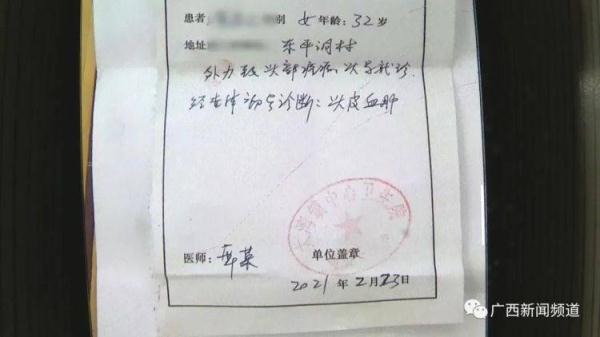 患者: 别 女 年龄: 32 岁
地址 东平洞村
外力致头部疼痛, 头晕就诊.
经查体初步诊断: 头皮血肿
中心卫生院
医师:
单位盖章
2021 年 2 月 23 日
广西新闻频道